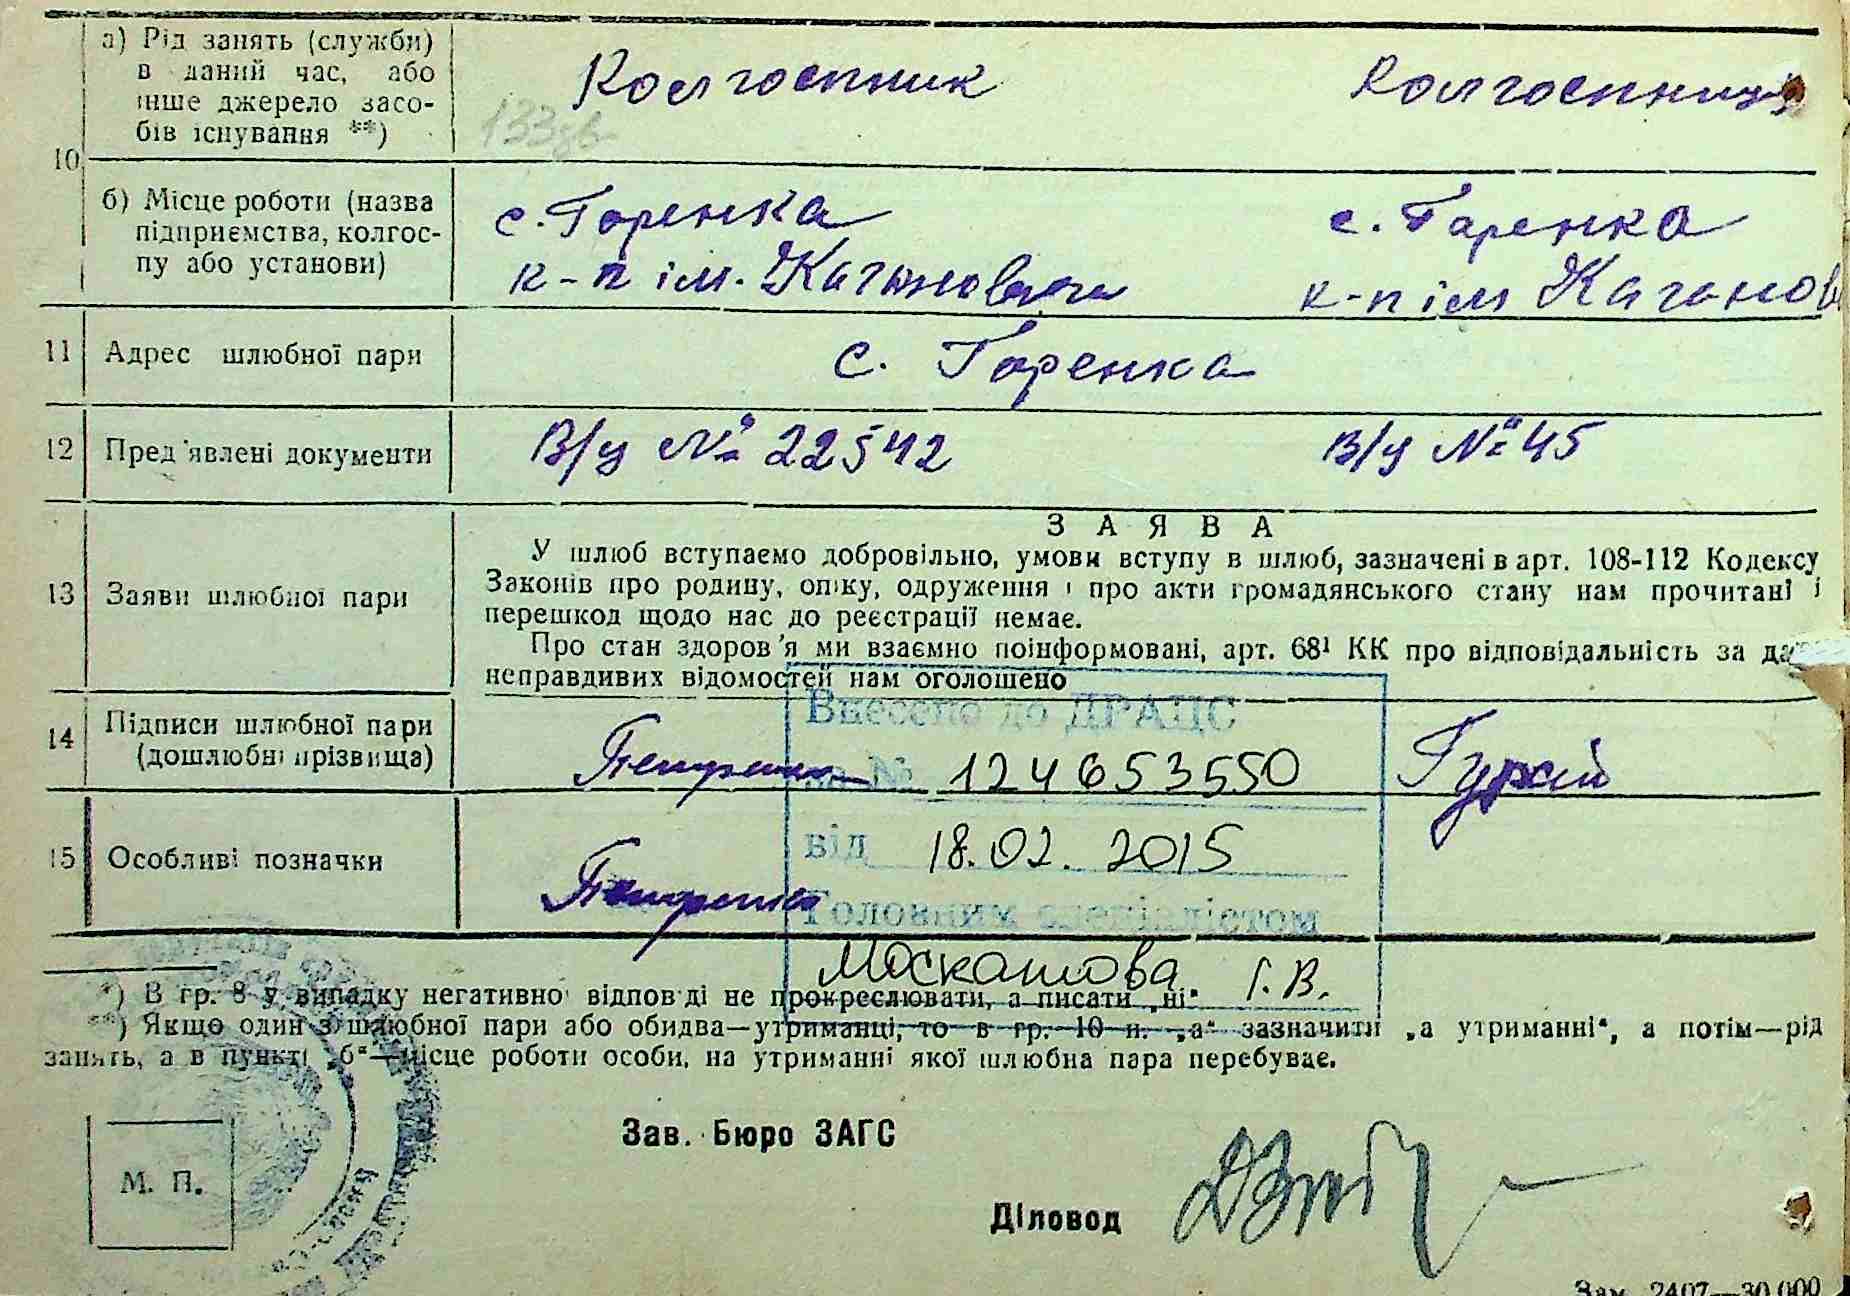 10
а) Рід занять (служби)
в даний час, або
інше джерело засо-
бів існування **)
Колгоспник
Колгоспниця
133
б) Місце роботи (назва
підприємства, колгос-
пу або установи)
с. Горенка
к-п ім. Кагановича
с. Горенка
к-п ім Каганов
11 Адрес шлюбної пари
с. Горенка
12 Пред'явлені документи
В/ц № 22542
В/ц № 45
13 Заяви шлюбної пари
ЗАЯВА
У шлюб вступаємо добровільно, умови вступу в шлюб, зазначені в арт. 108-112 Кодексу
Законів про родину, опіку, одруження і про акти громадянського стану нам прочитані і
перешкод щодо нас до реєстрації немає.
Про стан здоров'я ми взаємно поінформовані, арт. 68¹ КК про відповідальність за да
неправдивих відомостей нам оголошено
14 Підписи шлюбної пари
(дошлюбні прізвища)
Петренко
Гурій
Внесено до ДРАЦС
за № 124653550
від 18.02.2015
Головним спеціалістом
Москатова Г.В.
15 Особливі позначки
Петренко
*) В гр. 8 у випадку негативної відповіді не прокреслювати, а писати „ні"
**) Якщо один з шлюбної пари або обидва—утриманці, то в гр. 10 п. „а" зазначити „а утриманні", а потім—рід
занять, а в пункті „б"—місце роботи особи, на утриманні якої шлюбна пара перебуває.
М. П.
Зав. Бюро ЗАГС
Діловод
Зам. 2407—30.000